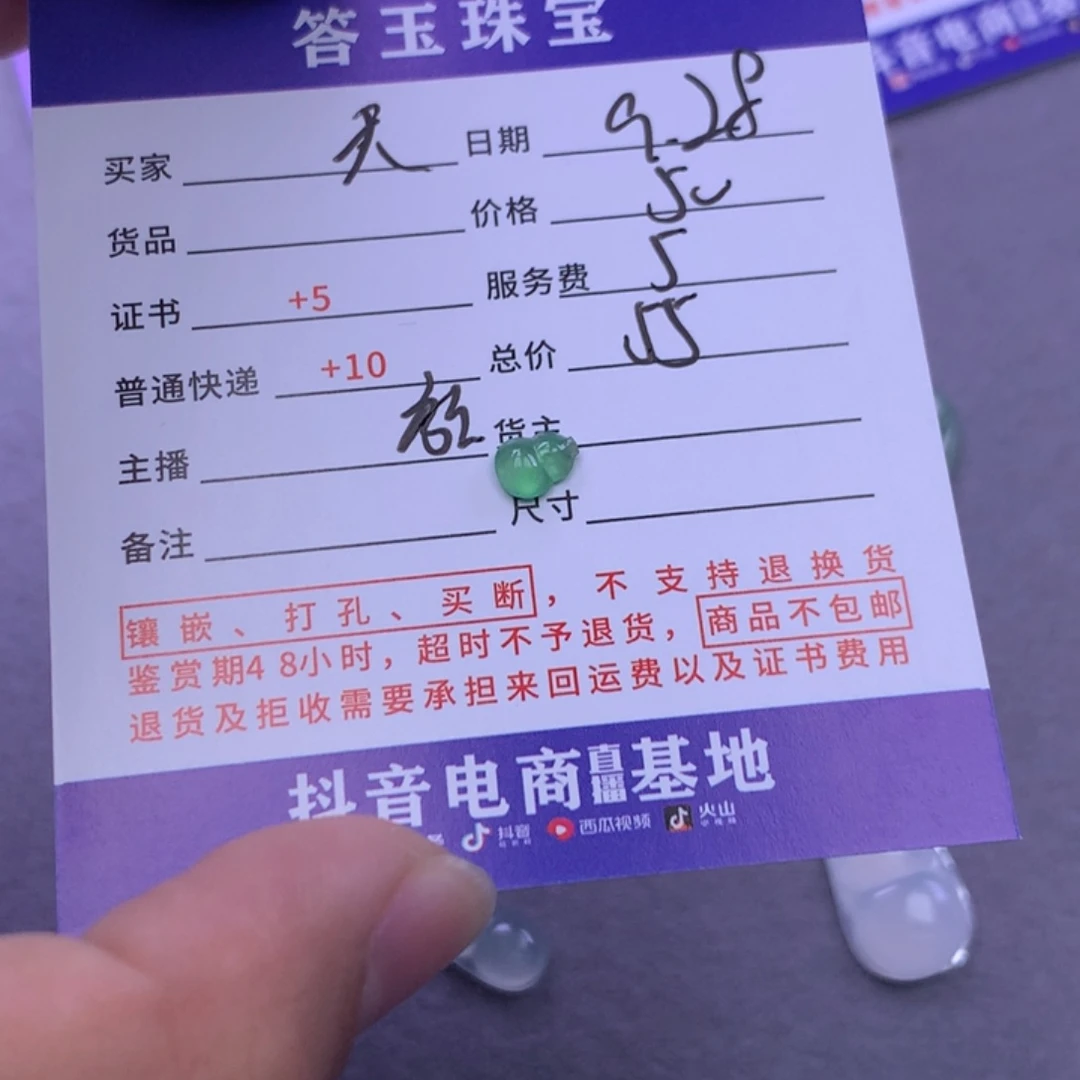 答玉珠宝
买家 天 日期 9.28
货品 价格 50
证书 +5 服务费 5
普通快递 +10 总价 55
主播 货主
备注 尺寸
镶嵌、打孔、买断，不支持退换货
鉴赏期48小时，超时不予退货，商品不包邮
退货及拒收需要承担来回运费以及证书费用
抖音电商直播基地
抖音 西瓜视频 火山
抖音电商